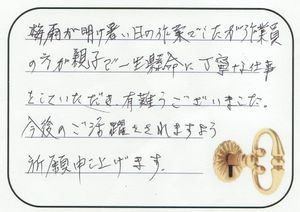 梅雨が明け暑い日の作業でしたが作業員
の方が親子で一生懸命に丁寧な仕事
をしていただき、有難うございました。
今後のご活躍をされますよう
祈願申し上げます。